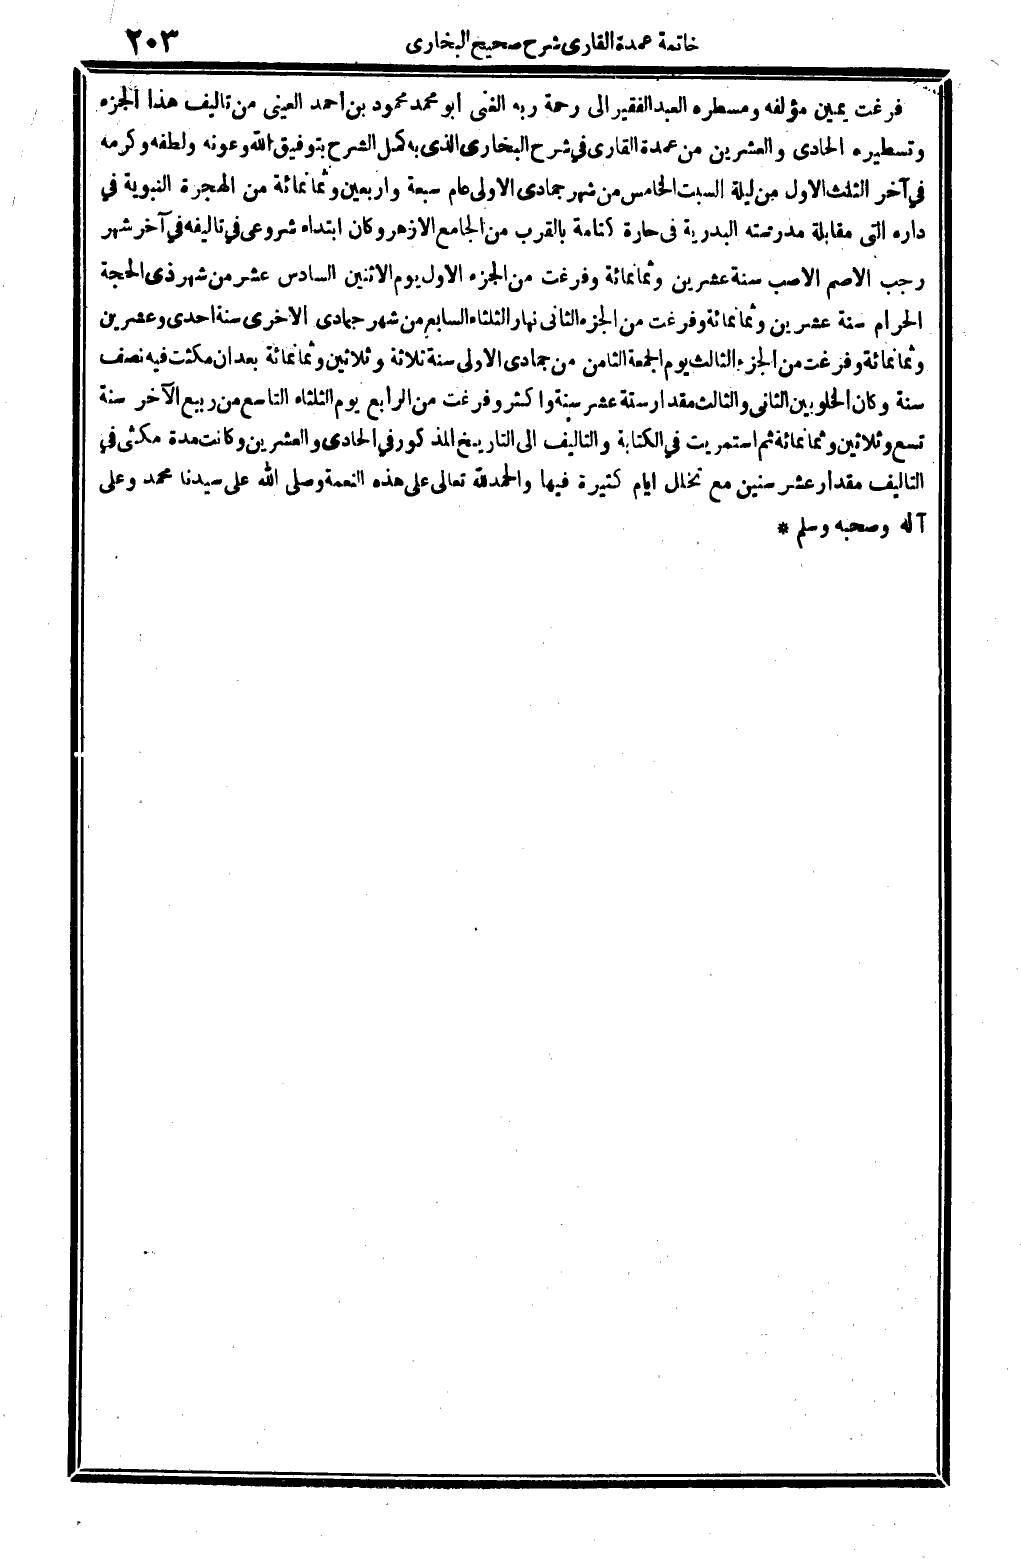 خاتمة عمدة القارى شرح صحيح البخارى ٢٠٣
فرغت يمين مؤلفه ومسطره العبد الفقير الى رحمة ربه الغنى ابو محمد محمود بن احمد العينى من تاليف هذا الجزء
وتسطيره الحادى والعشرين من عمدة القارى في شرح البخارى الذى به كمل الشرح بتوفيق الله وعونه ولطفه وكرمه
في آخر الثلث الاول من ليلة السبت الخامس من شهر جمادى الاولى عام سبعة واربعين وثمانمائة من الهجرة النبوية في
داره التى مقابلة مدرسته البدرية فى حارة كتامة بالقرب من الجامع الازهر وكان ابتداء شروعى في تاليفه في آخر شهر
رجب الاصم الاصب سنة عشرين وثمانمائة وفرغت من الجزء الاول يوم الاثنين السادس عشر من شهر ذى الحجة
الحرام سنة عشرين وثمانمائة وفرغت من الجزء الثانى نهار الثلثاء السابع من شهر جمادى الاخرى سنة احدى وعشرين
وثمانمائة وفرغت من الجزء الثالث يوم الجمعة الثامن من جمادى الاولى سنة ثلاثة وثلاثين وثمانمائة بعد ان مكثت فيه نصف
سنة وكان الخلو بين الثانى والثالث مقدار ستة عشر سنة واكثر وفرغت من الرابع يوم الثلثاء التاسع من ربيع الآخر سنة
تسع وثلاثين وثمانمائة ثم استمريت في الكتابة والتاليف الى التاريخ المذكور في الحادى والعشرين وكانت مدة مكثى في
التاليف مقدار عشر سنين مع تخلل ايام كثيرة فيها والحمدلله تعالى على هذه النعمة وصلى الله على سيدنا محمد وعلى
آله وصحبه وسلم *